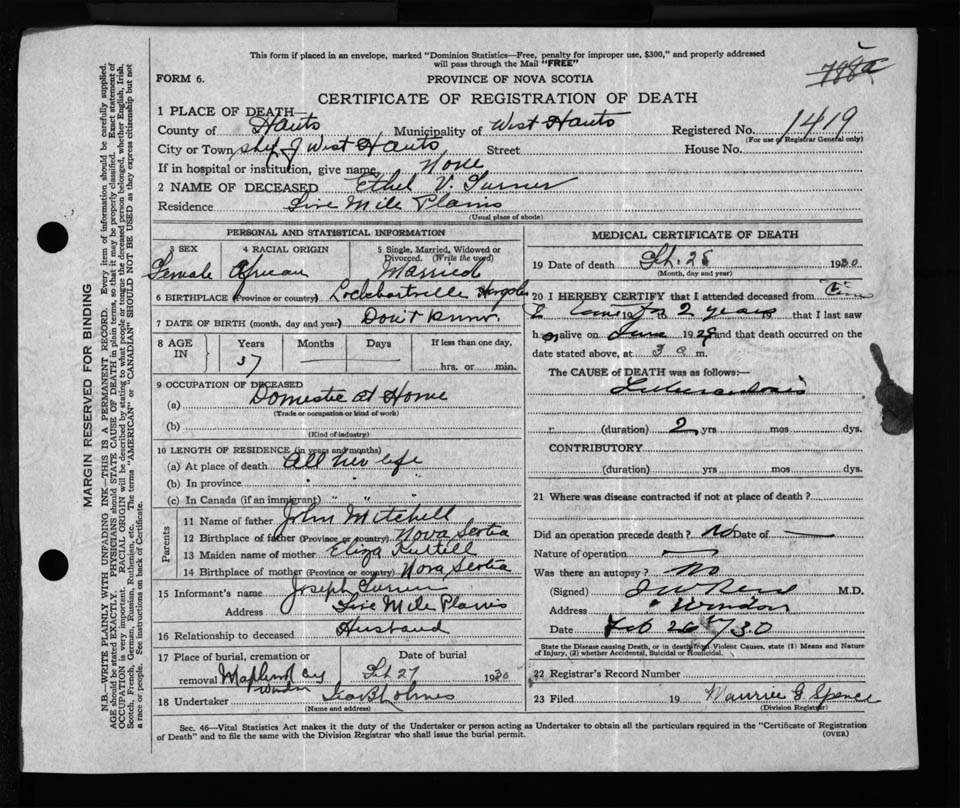 This form if placed in an envelope, marked "Dominion Statistics—Free, penalty for improper use, $300," and properly addressed
will pass through the Mail "FREE"
788a
FORM 6. PROVINCE OF NOVA SCOTIA
CERTIFICATE OF REGISTRATION OF DEATH
1 PLACE OF DEATH—
County of Hants Municipality of West Hants Registered No. 1419
(For use of Registrar General only)
City or Town West Hants Street House No.
If in hospital or institution, give name None
2 NAME OF DECEASED Ethel V. Turner
Residence Five Mile Plains
(Usual place of abode)
PERSONAL AND STATISTICAL INFORMATION
3 SEX 4 RACIAL ORIGIN 5 Single, Married, Widowed or
Divorced. (Write the word)
Female African Married
6 BIRTHPLACE (Province or country) Lockhartville
7 DATE OF BIRTH (month, day and year) Don't Know
8 AGE IN Years Months Days If less than one day,
37 hrs. or min.
9 OCCUPATION OF DECEASED
(a) Domestic at Home
(Trade or occupation or kind of work)
(b)
(Kind of industry)
10 LENGTH OF RESIDENCE (in years and months)
(a) At place of death All her life
(b) In province " " "
(c) In Canada (if an immigrant) " " "
Parents
11 Name of father John Mitchell
12 Birthplace of father (Province or country) Nova Scotia
13 Maiden name of mother Eliza
14 Birthplace of mother (Province or country) Nova Scotia
15 Informant's name Joseph Turner
Address Five Mile Plains
16 Relationship to deceased Husband
17 Place of burial, cremation or
removal Date of burial
Windsor Feb 27 1930
18 Undertaker Holmes
(Name and address)
MEDICAL CERTIFICATE OF DEATH
19 Date of death Feb. 25 1930
(Month, day and year)
20 I HEREBY CERTIFY that I attended deceased from
19 to 2 years 19 that I last saw
h er alive on June 1929 and that death occurred on
date stated above, at 3 a m.
The CAUSE of DEATH was as follows:—
Tuberculosis
(duration) 2 yrs mos dys.
CONTRIBUTORY
(duration) yrs mos dys.
21 Where was disease contracted if not at place of death?
Did an operation precede death? No Date of —
Nature of operation —
Was there an autopsy? No
(Signed) M.D.
Address Windsor
Date Feb 26th/30
State the Disease causing Death, or in death from Violent Causes, state (1) Means and Nature
of Injury, (2) whether Accidental, Suicidal or Homicidal.
22 Registrar's Record Number
23 Filed 19 Maurice G. Spence
(Division Registrar)
Sec. 46—Vital Statistics Act makes it the duty of the Undertaker or person acting as Undertaker to obtain all the particulars required in the "Certificate of Registration
of Death" and to file the same with the Division Registrar who shall issue the burial permit. (OVER)
MARGIN RESERVED FOR BINDING
N.B.—WRITE PLAINLY WITH UNFADING INK—THIS IS A PERMANENT RECORD. Every item of information should be carefully supplied.
AGE should be stated EXACTLY. PHYSICIANS should STATE CAUSE OF DEATH in plain terms, so that it may be properly classified. Exact statement of
OCCUPATION is very important. RACIAL ORIGIN will be described by stating to what people or tongue the deceased person belonged, whether English, Irish,
Scotch, French, German, Russian, Ruthenian, etc. The terms "AMERICAN" or "CANADIAN" SHOULD NOT BE USED as they express citizenship but not
a race or people. See instructions on back of Certificate.